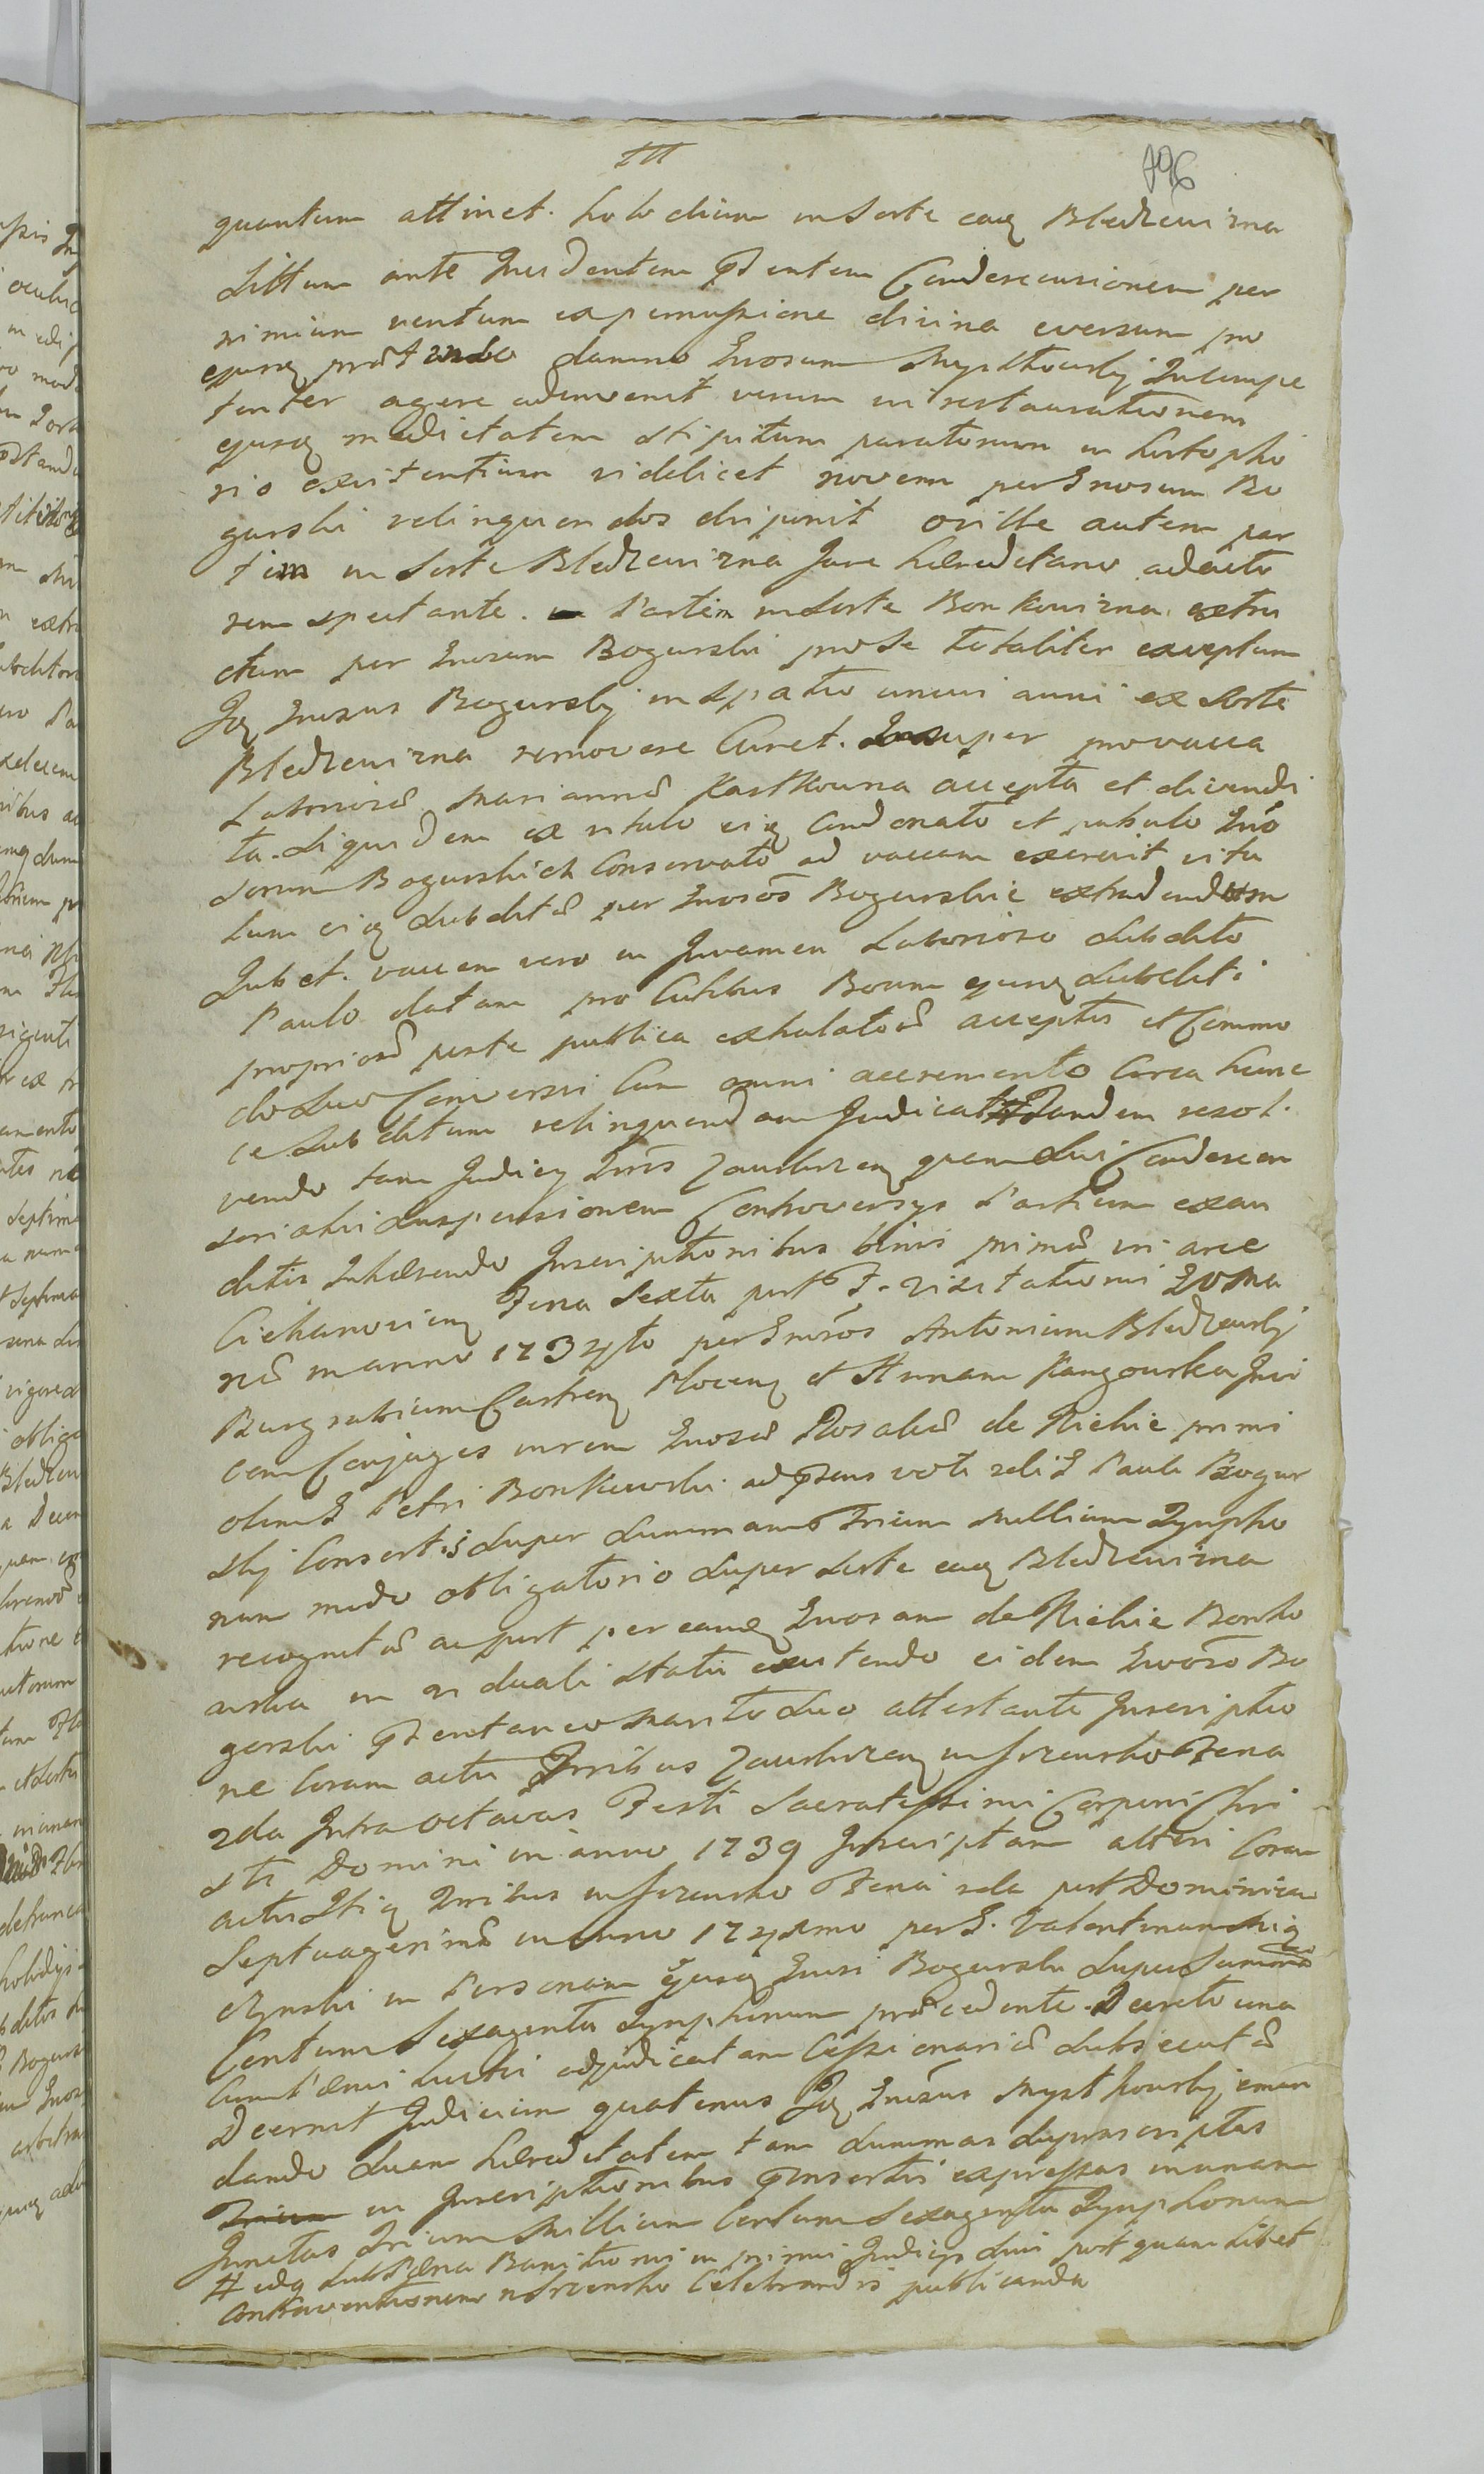 III
796
quantum attinet. hobodium in Sorte eaq Bledzewizna
Sittum ante Incidentem pdentem Condescensionem per
nimium ventum ex permissione divina eversum pro
ejusq damno Gnosum Mystkowskj Incompe
tenter agere adinvenit verum in restaurationem
ejusq medietatem stipitum paratorum in
rio existentium videlicet novem per Gnosum Bo
gurski relinquendos disponit oville autem par
tim in Sorte Bledzewizna Jure haereditario ad acto
rem spectante. Partim in Sorte Bonkowizna extru
ctum per Gnosum Bogurski pro se totaliter exceptum
Iq Gnosus Bogurskj in Spatio unius anni ex Sorte
Bledzewizna removere Curet. Insuper pro vacca
Laboriosae Mariannae Kostkowna accepta et divendi
ta. Siquidem ex vitulo eiq Condonato et pabulo Gnō
sorum Bogurskich Conservato ad vaccam excrevit vitu
lum eiq Subditae per Gnosōs Bogurskie extradendum
Jubet. vaccam vero in Juvamen Laborioso Subdito
Paulo datam pro Cutibus Boum ejusq Subditi
propriorū peste publica exhalatorū acceptis et Commo
do Suo Conversis Cum omni accremento Circa hunc
ce Subditum relinquendam Judicat # Tandem resol.
vendo tam Judicij Trrīs Zawskrzen quam Sui Condescen
sorialis Suspensionem Controversijs Partium exau
ditis Inhaerendo Inscriptionibus binis primae in arce
Ciechanovien Feria Sexta post F. Visitationis
nae in anno 1734to per Gnrōsos Antonium Bledzewskj
Burgrabium Castren Plocen et Annam Kanigowska Invi
cem Conjuges in rem Gnosae Rosaliae de Kichie primi
olim G Petri Bonkowski ad psens voti reliG Pauli Bogur
skj Consortis Super Summam Trium Millium Tympho
num modo obligatorio Super Sorte eaq Bledzewizna
recognitae ac post per eandq Gnosam de Kichie Bonko
wska in viduali Statu existendo eidem Gnōso Bo
gurski pdentaneo Marito Suo attestante Inscriptio
ne Coram actis Trribus Zawskrzen in Szrensko Feria
2da Intra octavas Festi Sacratissimi Corporis Chri
sti Domini in anno 1739 Inscriptam alteri Coram
actis Itiq Trribus in Szrensko Feria 2da post Dominicam
Septuagesimae in anno 174Xmo per G. Valentinum
czynski in Personam Ejusq Gnosi Bogurski Super Summā
Centum Sexaginta Tymphonum praecedente Decreto una
Cum Paenis luctis adjudicatam Cessionariae Subsecutae
Decernit Judicium quatenus Iq Gnōsus Mystkowskj eman
dando Suam haereditatem tam Summas Suprascriptas
Trium in Inscriptionibus pinsertis expressas in unam
Junctas Trium Millium Centum Sexaginta Tymphonum
# idq Sub Paena Banitionis in primis Judicijs Sui post quam libet
Contraventionem in Szrensko Celebrandis publicanda